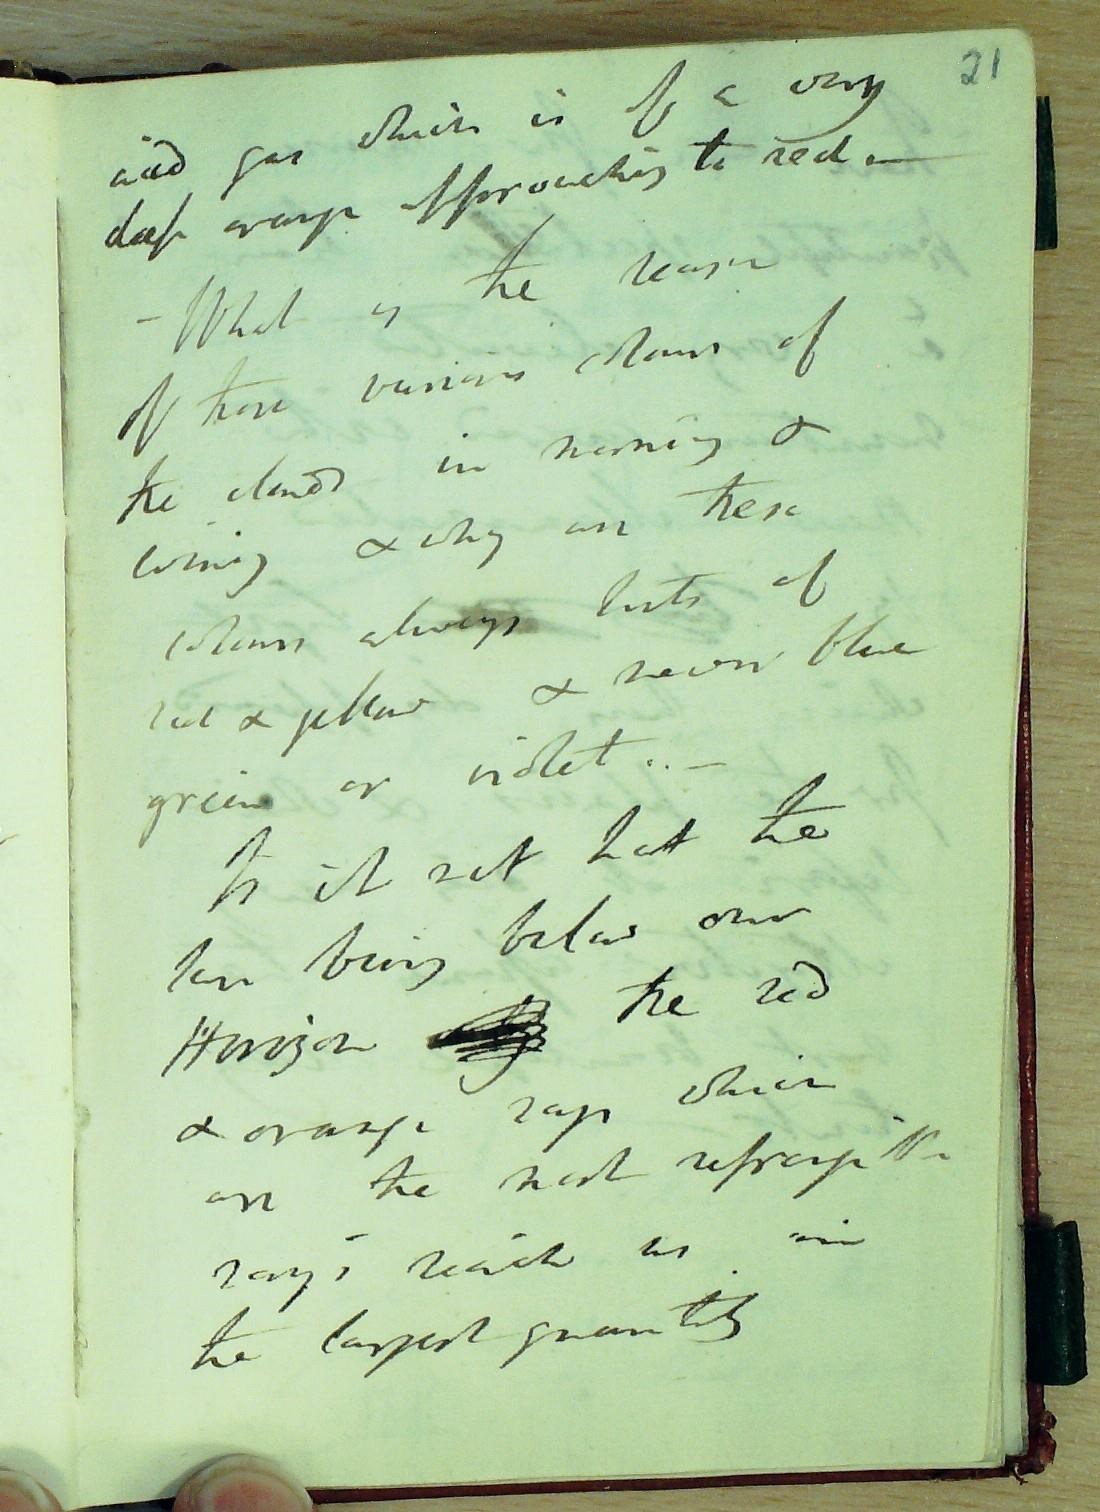 21
acid gas which is of a very
deep orange approaching to red. —
– What is the reason
of these various colours of
the clouds in morning &
evening & why are these
colours always tints of
red & yellow & never blue
green or violet . . –
Is it not that the
sun being below our
Horizon the red
& orange rays which
are the most refrangible
rays reach us in
the largest quantity